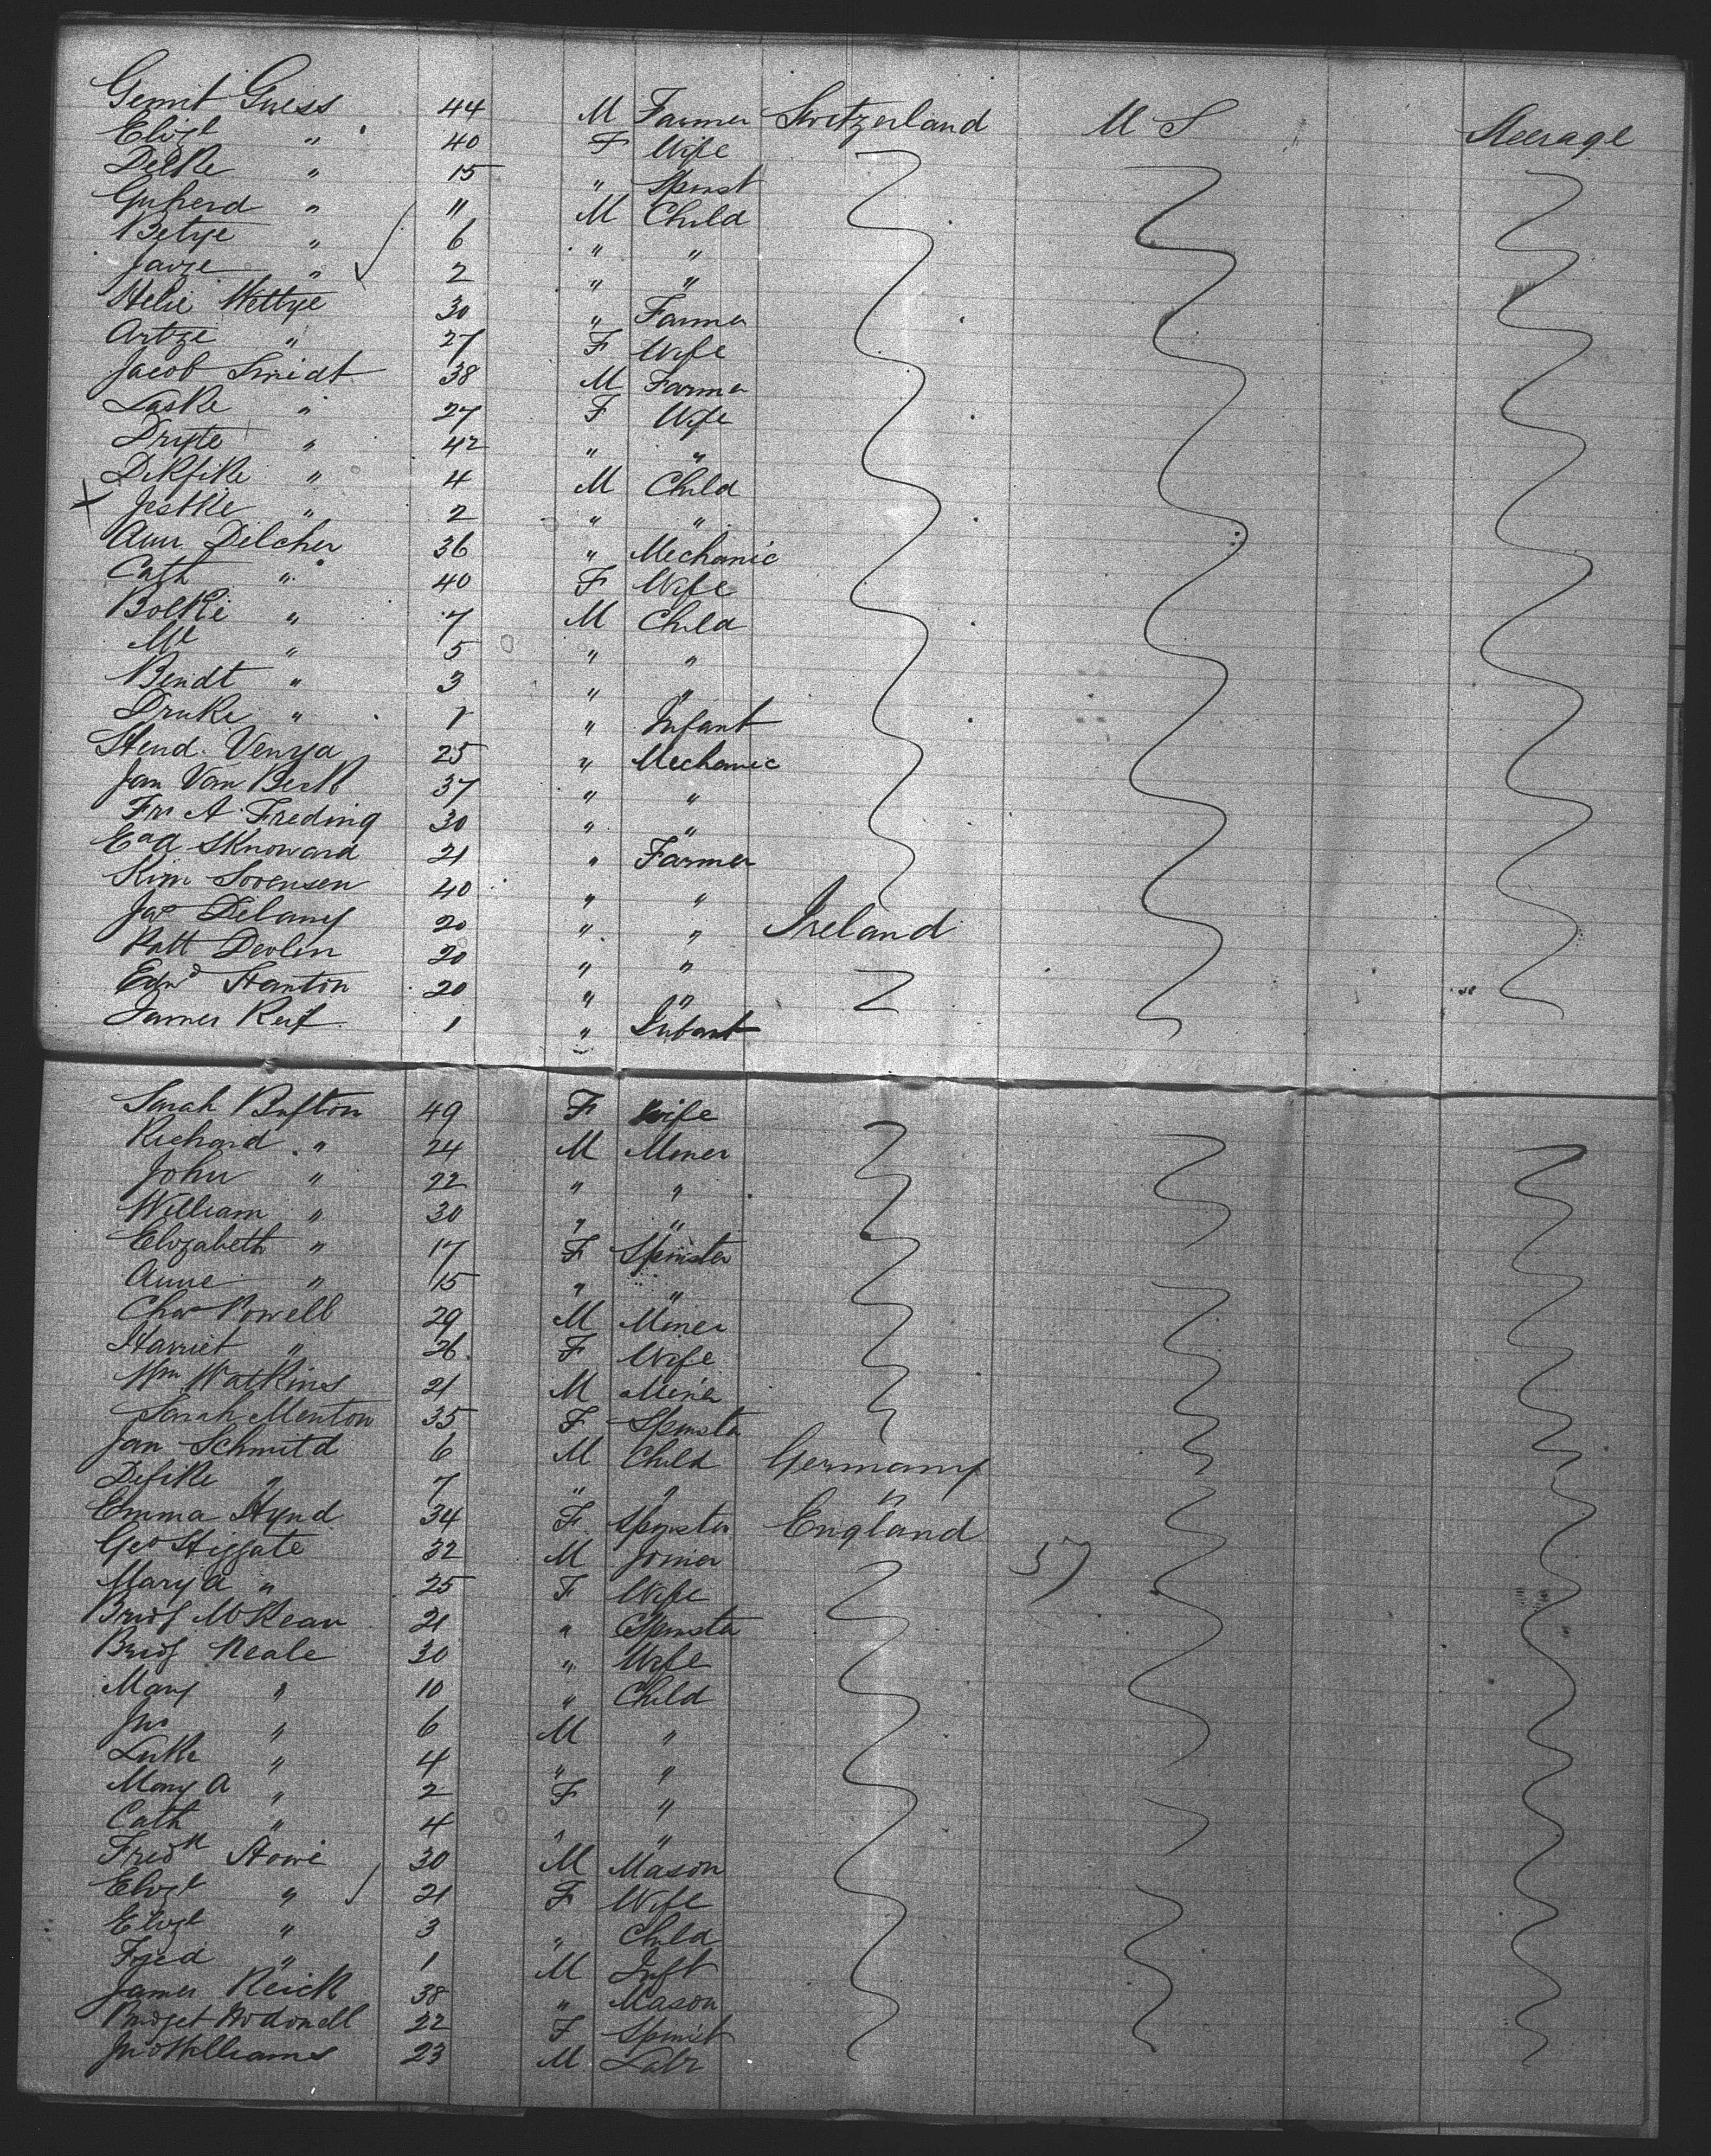 Gerrit Guess 44 M Farmer Switzerland U S Steerage
Elizt " 40 F Wife
Delke " 15 " Spinst
Gupherd " 11 M Child
Betye " 6 " "
Javze " 2 " "
Helie Wettye 30 " Farmer
Artze " 27 F Wife
Jacob Smidt 38 M Farmer
Laske " 27 F Wife
Dryte " 42 " "
Dikfike " 4 M Child
x Jestke " 2 " "
Aun Dilcher 36 " Mechanic
Cath " 40 F Wife
Bolke " 7 M Child
" 5 " "
Bendt " 3 " "
Druke " 1 " Infant
Hend. Venya 25 " Mechanic
Jan Van Beck 37 " "
Fr A Freding 30 " "
Sknoward 21 " Farmer
Kim Sorensen 40 " "
Jas Delany 20 " " Ireland
Patt Devlin 20 " "
Edwd Stanton 20 " "
James Reif 1 " Infant
Sarah Bufton 49 F Wife
Richard " 24 M Miner
John " 22 " "
William " 30 " "
Elizabeth " 17 F Spinster
Anne " 15 " "
Chas Powell 29 M Miner
Harriet " 26 F Wife
Wm Watkins 21 M Miner
Sarah Menton 35 F Spinster
Jan Schmitd 6 M Child Germany
Defike " 7 " " "
Emma Hynd 34 F Spinster England
Geo Higgate 32 M Joiner 57
Mary A " 25 F Wife
Bridg McKeav 21 " Spinster
Bridg Neale 30 " Wife
Mary " 10 " Child
Jno " 6 M "
Luke " 4 " "
Mary A " 2 F "
Cath " 4 " "
Fredk Howe 30 M Mason
Elizt " 21 F Wife
Elizt " 3 " Child
Fred " 1 M Inft
James Keick 38 " Mason
Bridget Hodonell 22 F Spinst
Jno Williams 23 M Labr